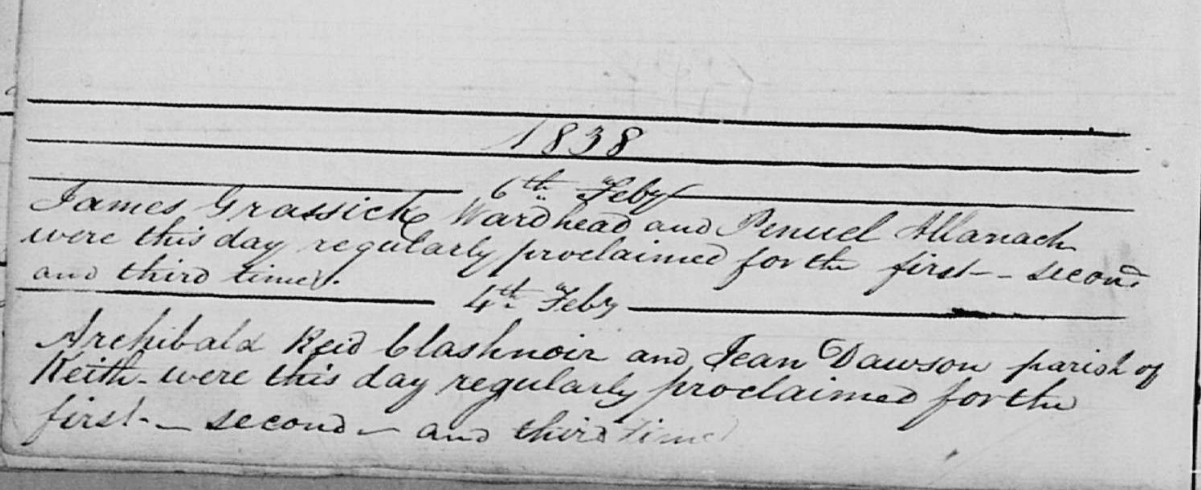 1838
6th Feby
James Grassick Wardhead and Penuel Allanach
were this day regularly proclaimed for the first - second
and third times.
4th Feby
Archibald Reid Clashnoir and Jean Dawson parish of
Keith - were this day regularly proclaimed for the
first - second - and third time